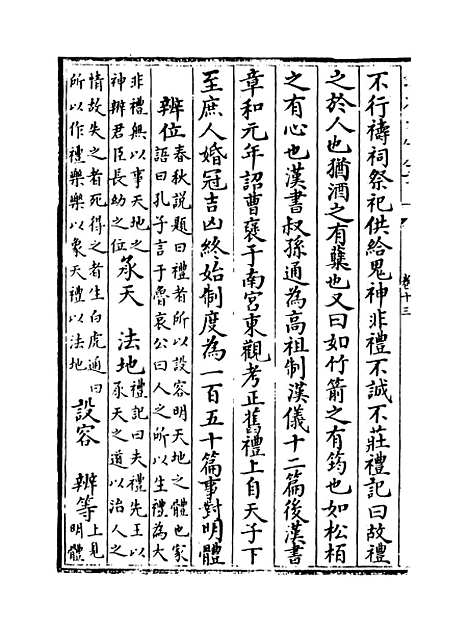 卷十三
不行禱祠祭祀供給鬼神非禮不誠不莊禮記曰故禮
之於人也猶酒之有糵也又曰如竹箭之有筠也如松栢
之有心也漢書叔孫通為高祖制漢儀十二篇後漢書
章和元年詔曹襃于南宮東觀考正舊禮上自天子下
至庶人婚冠吉凶終始制度為一百五十篇事對明體
辨位春秋說題曰禮者所以設容明天地之體也家
語曰孔子言于魯哀公曰人之所以生禮為大
非禮無以事天地之
神辨君臣長幼之位承天 法地禮記曰夫禮先王以
承天之道以治人之
情故失之者死得之者生白虎通曰
所以作禮樂樂以象天禮以法地設容 辨等上見
明體